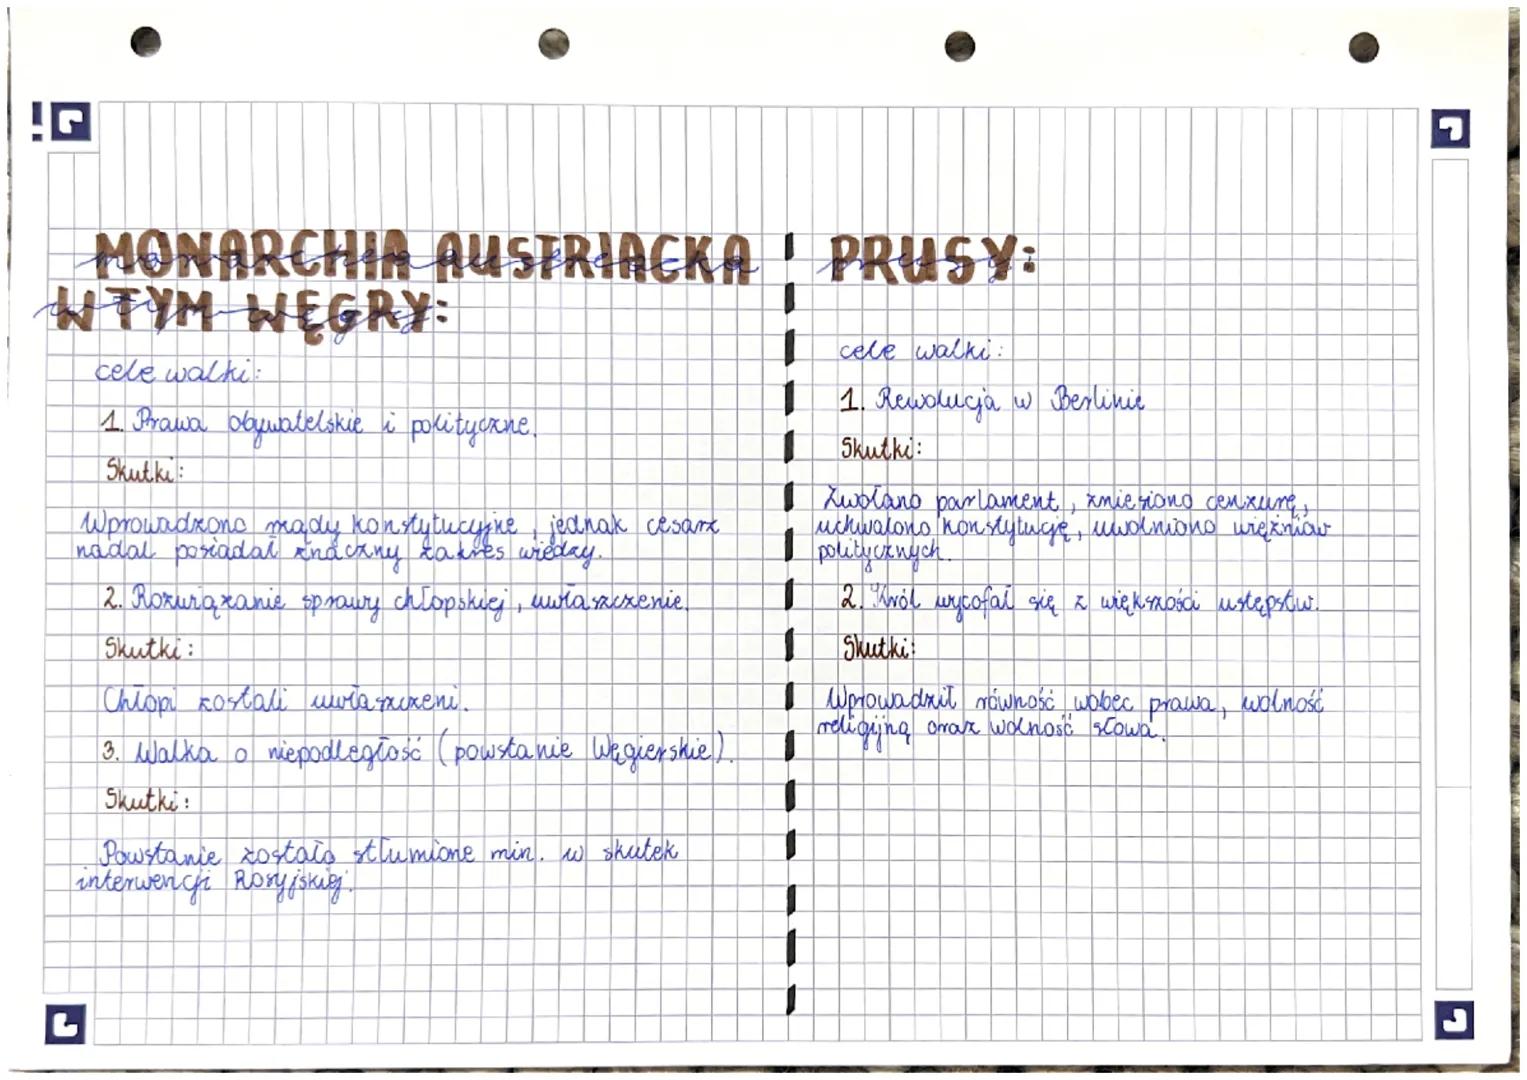 MONARCHIA AUSTRIACKA
W TYM WĘGRY:
cele walki:
1. Prawa obywatelskie i polityczne.
Skutki:
Wprowadzono rządy konstytucyjne, jednak cesarz
nadal posiadał znaczny zakres wiedzy.
2. Rozwiązanie sprawy chłopskiej, uwłaszczenie.
Skutki:
Chłopi zostali uwłaszczeni.
3. Walka o niepodległość (powstanie Węgierskie).
Skutki:
Powstanie zostało stłumione min. w skutek
interwencji Rosyjskiej.
PRUSY:
cele walki:
1. Rewolucja w Berlinie
Skutki:
Zwołano parlament, zniesiono cenzurę,
uchwalono konstytucję, uwolniono więźniów
politycznych.
2. Król wycofał się z większości ustępstw.
Skutki:
Wprowadził równość wobec prawa, wolność
religijną oraz wolność słowa.